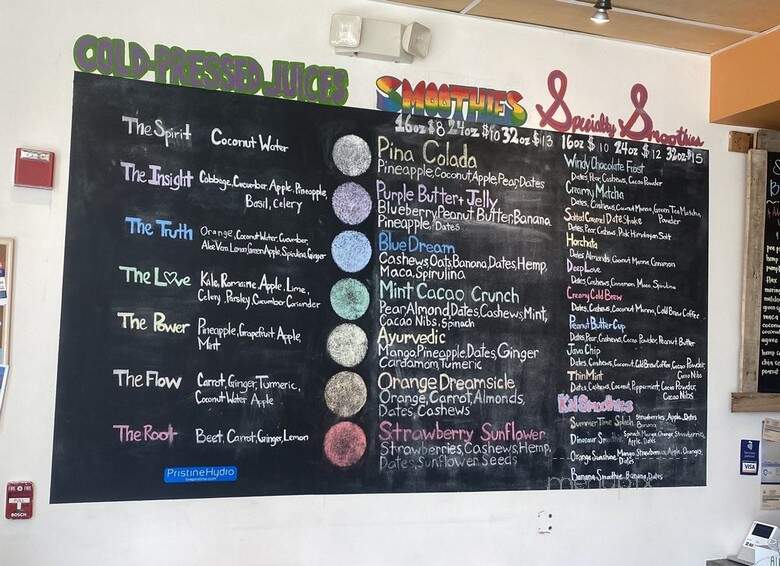 COLD-PRESSED JUICES
The Spirit Coconut Water
The Insight Cabbage, Cucumber, Apple, Pineapple,
Basil, Celery
The Truth Orange, Coconut Water, Cucumber,
Aloe Vera, Lemon, Green Apple, Spirulina, Ginger
The Love Kale, Romaine, Apple, Lime,
Celery, Parsley, Cucumber, Coriander
The Power Pineapple, Grapefruit, Apple,
Mint
The Flow Carrot, Ginger, Turmeric,
Coconut Water, Apple
The Root Beet, Carrot, Ginger, Lemon
PristineHydro
SMOOTHIES
16oz $8 24oz $10 32oz $13
Pina Colada
Pineapple, Coconut, Apple, Pear, Dates
Purple Butter + Jelly
Blueberry, Peanut Butter, Banana
Pineapple, Dates
Blue Dream
Cashews, Oats, Banana, Dates, Hemp,
Maca, Spirulina
Mint Cacao Crunch
Pear, Almond, Dates, Cashews, Mint,
Cacao Nibs, Spinach
Ayurvedic
Mango, Pineapple, Dates, Ginger
Cardamom, Tumeric
Orange Dreamsicle
Orange, Carrot, Almonds,
Dates, Cashews
Strawberry Sunflower
Strawberries, Cashews, Hemp,
Dates, Sunflower Seeds
Specialty Smoothies
16oz $10 24oz $12 32oz $15
Windy Chocolate Frost
Dates, Pear, Cashews, Cacao Powder
Creamy Matcha
Dates, Cashews, Coconut Manna, Green Tea Matcha
Powder
Salted Caramel Date Shake
Dates, Pear, Cashews, Pink Himalayan Salt
Horchata
Dates, Almonds, Coconut Manna, Cinnamon
Deep Love
Dates, Cashews, Cinnamon, Maca, Spirulina
Creamy Cold Brew
Dates, Cashews, Coconut Manna, Cold Brew Coffee
Peanut Butter Cup
Dates, Pear, Cashews, Cacao Powder, Peanut Butter
Java Chip
Dates, Cashews, Coconut, Cold Brew Coffee, Cacao Powder,
Cacao Nibs
Thin Mint
Dates, Cashews, Coconut, Peppermint, Cacao Powder,
Cacao Nibs
Kid Smoothies
Summer Time Splash Strawberries, Apple, Dates
Banana
Dinosaur Smoothie Spinach, Mango, Orange, Strawberries,
Apple, Dates
Orange Sunshine Mango, Strawberries, Apple, Oranges,
Dates
Banana Smoothie Banana, Dates
VISA
FIRE
BOSCH